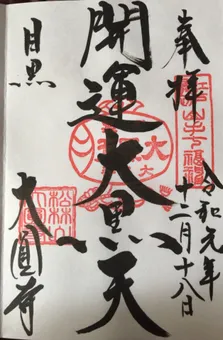 奉拝
令和元年
十二月十八日
開運大黒天
目黒
大圓寺